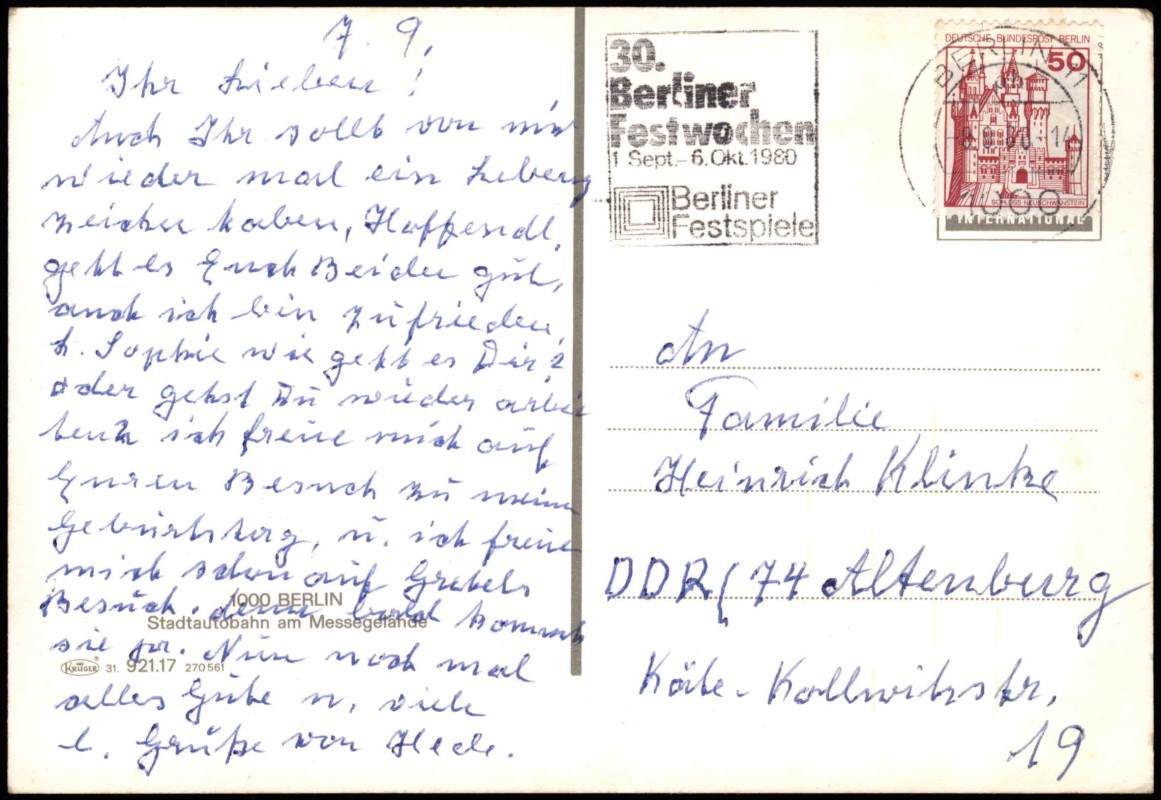 7. 9.
Ihr Lieben!
Auch Ihr sollt von mir
wieder mal ein Lebens
zeichen haben, Hoffendl.
geht es Euch Beiden gut,
auch ich bin zufrieden.
L. Sophie wie geht es Dir?
oder gehst Du wieder arbei
ten? ich freue mich auf
Euren Besuch zu meine
Geburtstag, u. ich freue
mich schon auf
Besuch. denn bald kommt
sie ja. Nun noch mal
alles Gute u. viele
l. Grüße von Hede.
1000 BERLIN
Stadtautobahn am Messegelände
KRÜGER 31. 921.17 270561
30.
Berliner
Festwochen
1 Sept.-6.Okt.1980
Berliner
Festspiele
DEUTSCHE BUNDESPOST BERLIN
50
SCHLOSS NEUSCHWANSTEIN
INTERNATIONAL
BERLIN 11
1000
An
Familie
Heinrich Klinke
DDR (74 Altenburg
Käte-Kollwitzstr.
19